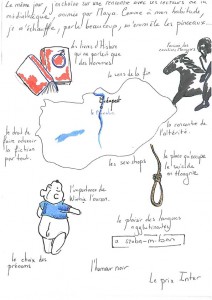 Le même jour, j'enchaîne sur une rencontre avec des lecteurs en
médiathèque, animée par Maya. Comme à mon habitude,
je m'échauffe, parle beaucoup, m'emmêle les pinceaux...
les livres d'Histoire
qui ne parlent que
des hommes
le sens de la fin
Budapest
la rencontre de
l'altérité.
le droit de
faire
fiction par
tout.
les sex-shops
la place qu'occupe
le
en Hongrie
l'importance de
Winnie l'ourson.
le plaisir des langues
agglutinantes
le choix des
prénoms
l'humour noir
Le prix Inter